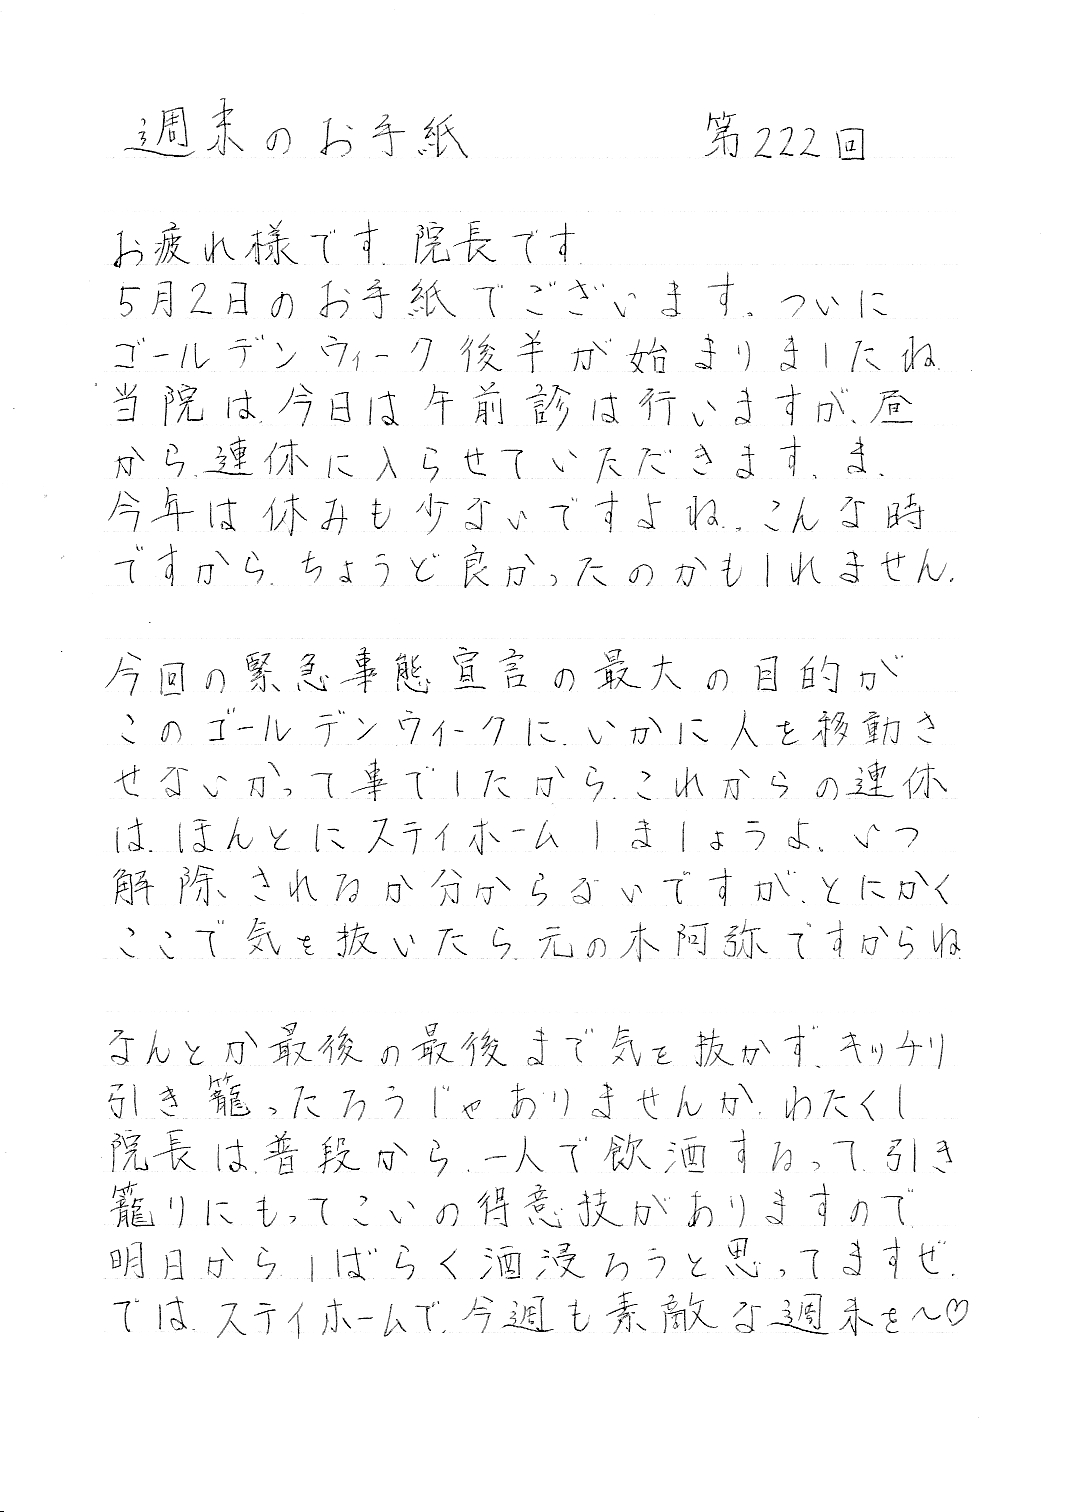 週末のお手紙 第222回
お疲れ様です、院長です。
5月2日のお手紙でございます。ついに
ゴールデンウィーク後半が始まりましたね。
当院は、今日は午前診は行いますが、昼
から、連休に入らせていただきます。ま、
今年は休みも少ないですよね。こんな時
ですから、ちょうど良かったのかもしれません。
今回の緊急事態宣言の最大の目的が
このゴールデンウィークに、いかに人を移動さ
せないかって事でしたから、これからの連休
は、ほんとにステイホームしましょうよ。いつ
解除されるか分からないですが、とにかく
ここで気を抜いたら、元の木阿弥ですからね。
なんとか最後の最後まで気を抜かず、キッチリ
引き籠ったろうじゃありませんか。わたくし
院長は、普段から、一人で飲酒するって、引き
籠りにもってこいの得意技がありますので、
明日から、しばらく酒浸ろうと思ってますぜ。
では、ステイホームで、今週も素敵な週末を〜♡